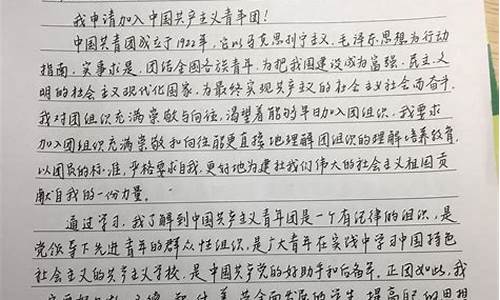 我申请加入中国共产主义青年团！
中国共青团成立于1922年，它以马克思列宁主义、毛泽东思想为行动
指南，实事求是，团结全国各族青年，为把我国建设成为富强、民主、文
明的社会主义现代化国家，为最终实现共产主义的社会主义社会而奋斗。
我对团组织充满崇敬与向往，渴望着能够早日加入团组织。我要求
加入团组织充满崇敬和向往能更直接地理解团组织的理解培养教育，
以团员的标准，严格要求自我，更好地为建社我们伟大的社会主义祖国贡
献自我的一份力量。
通过学习，我了解到中国共产主义青年团是一个有纪律的组织，是
党领导下先进青年的群众性组织，是广大青年在实践中学习中国特色
社会主义的共产主义学校，是中国共产党的好助手和后备军。正因如此，我
全面发展的学生，提高自己的思想